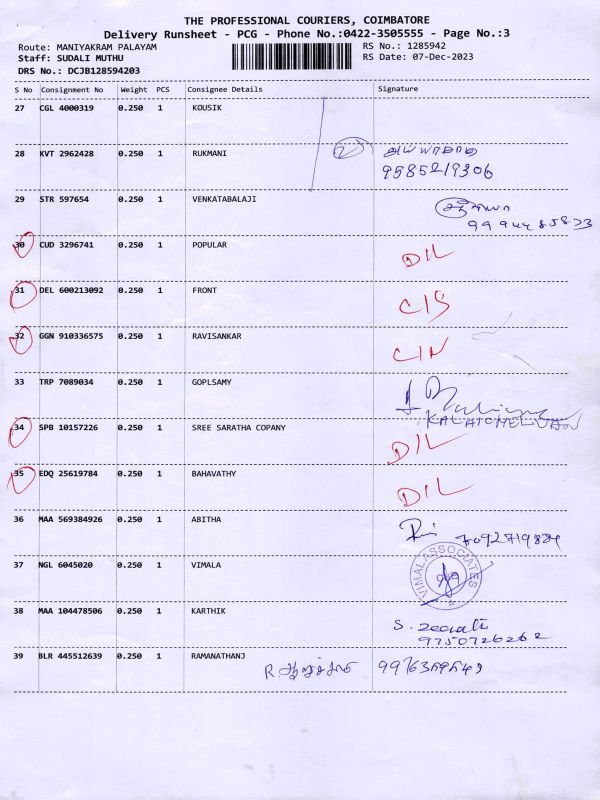 THE PROFESSIONAL COURIERS, COIMBATORE
Delivery Runsheet - PCG - Phone No.:0422-3505555 - Page No.:3
Route: MANIYAKRAM PALAYAM RS No.: 1285942
Staff: SUDALI MUTHU RS Date: 07-Dec-2023
DRS No.: DCJB128594203
S No Consignment No Weight PCS Consignee Details Signature
27 CGL 4000319 0.250 1 KOUSIK
28 KVT 2962428 0.250 1 RUKMANI 2
9585219306
29 STR 597654 0.250 1 VENKATABALAJI
30 CUD 3296741 0.250 1 POPULAR D/L
31 DEL 600213092 0.250 1 FRONT
32 GGN 910336575 0.250 1 RAVISANKAR
33 TRP 7089034 0.250 1 GOPLSAMY
34 SPB 10157226 0.250 1 SREE SARATHA COPANY D/L
35 EDQ 25619784 0.250 1 BAHAVATHY D/L
36 MAA 569384926 0.250 1 ABITHA
37 NGL 6045020 0.250 1 VIMALA VIMAL ASSOCIATES
38 MAA 104478506 0.250 1 KARTHIK
9750726262
39 BLR 445512639 0.250 1 RAMANATHANJ